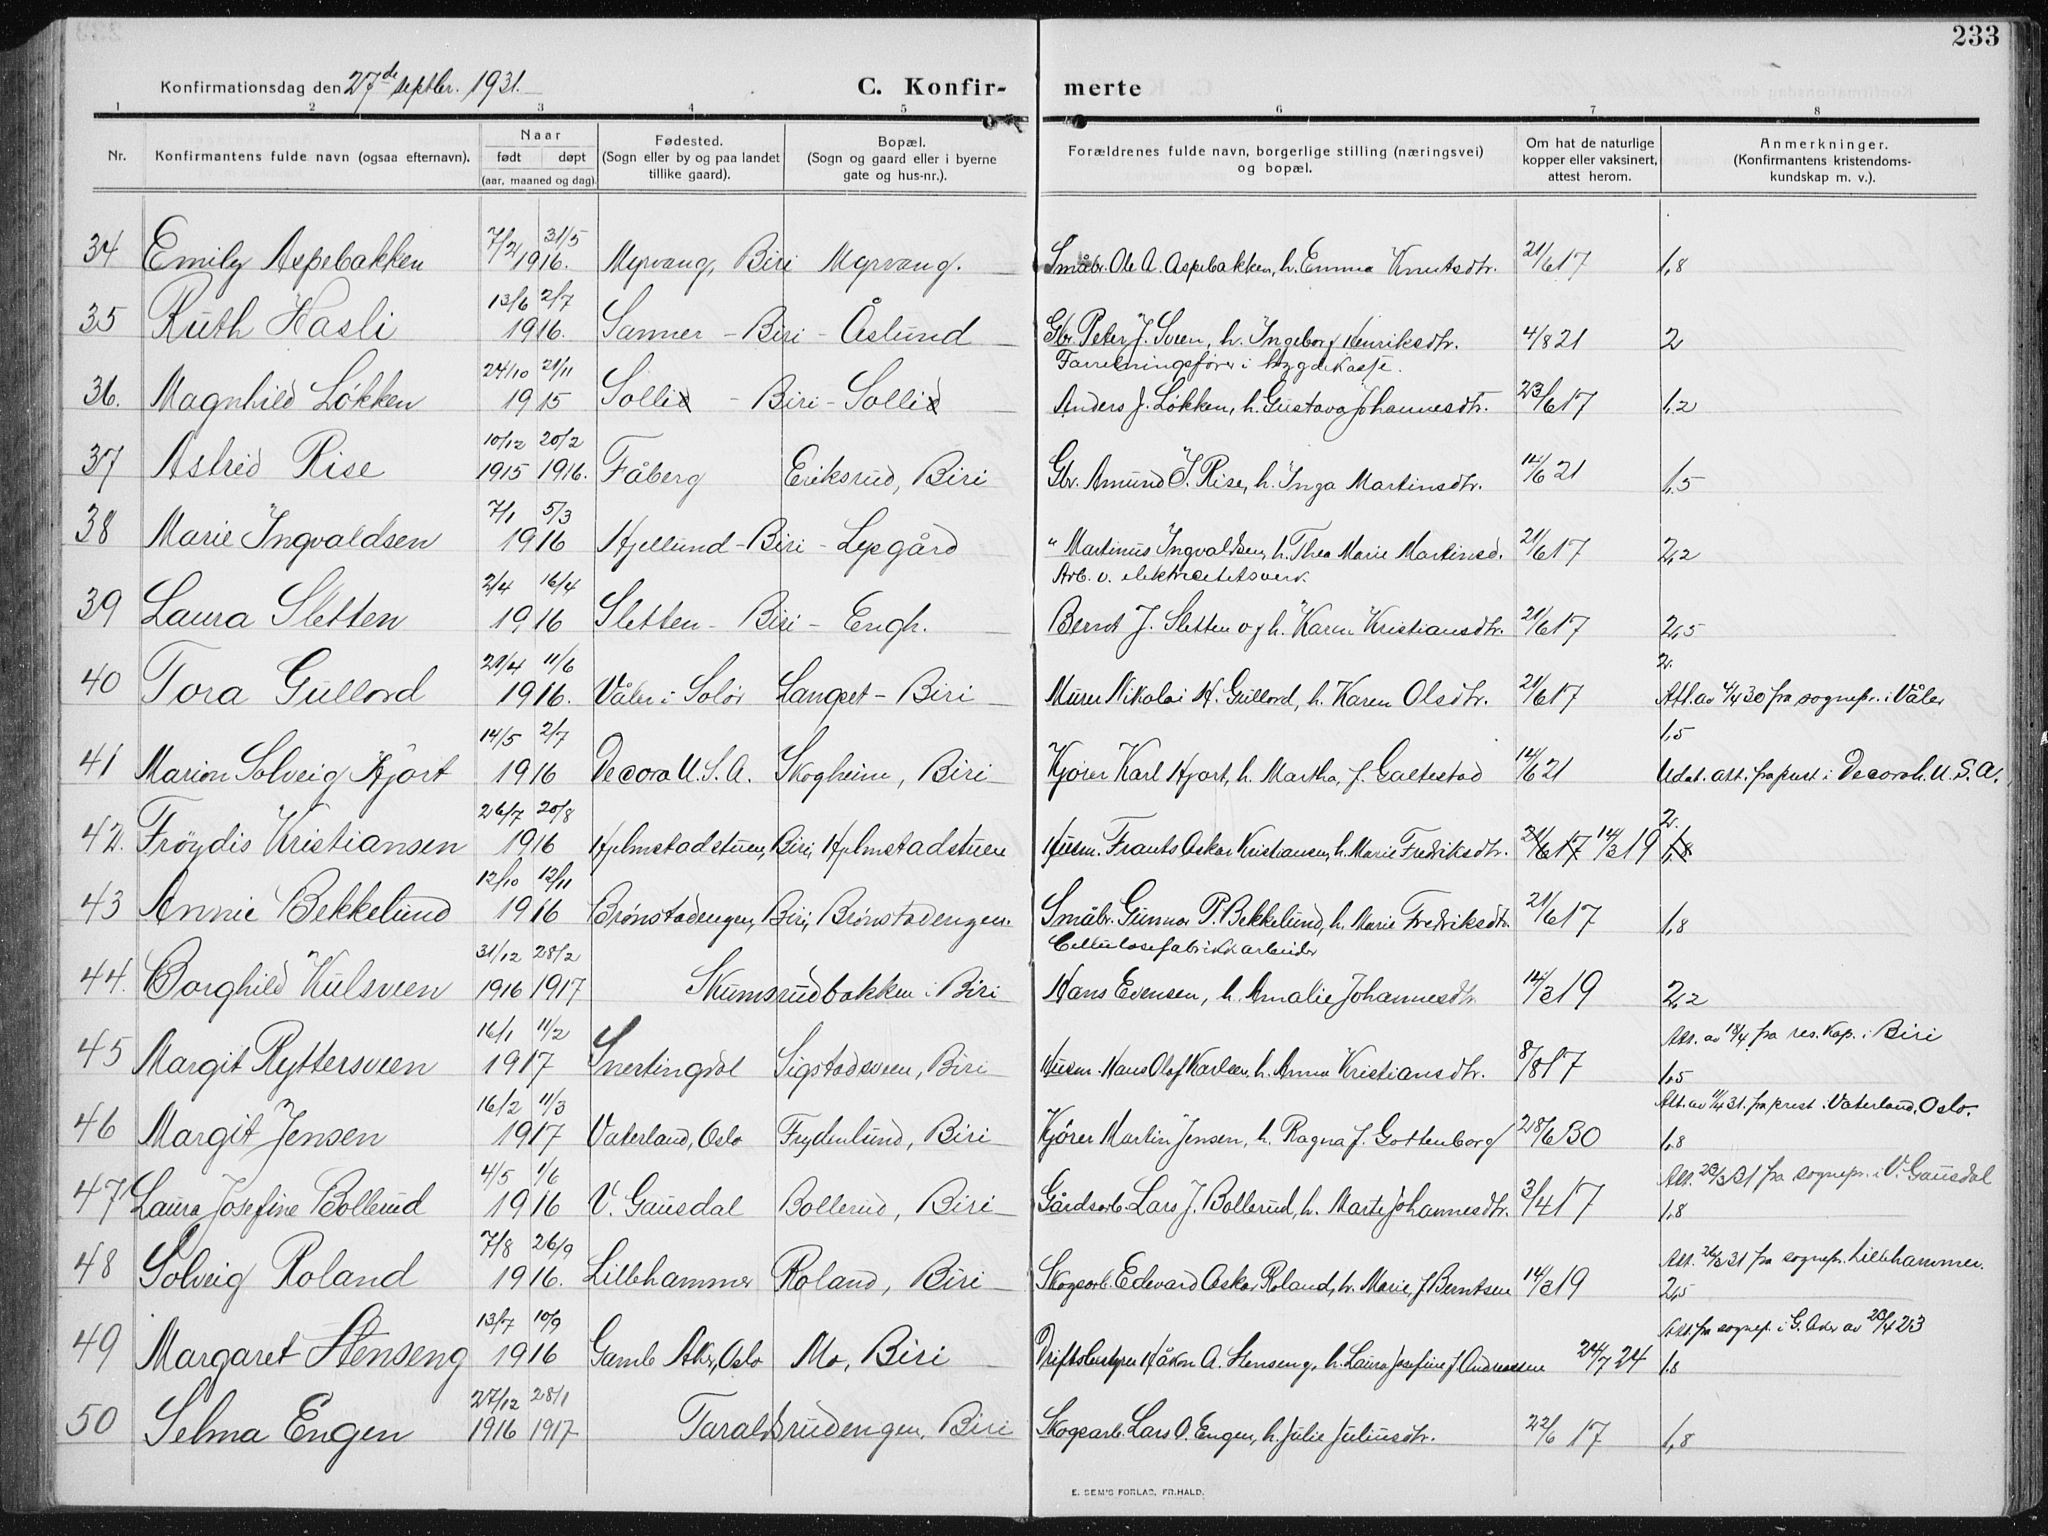 233
Konfirmationsdag den 27de septbr. 1931.
C. Konfir- merte
1 2 3 4 5 6 7 8
Nr. Konfirmantens fulde navn (ogsaa efternavn). Naar født døpt (aar, maaned og dag). Fødested. (Sogn eller by og paa landet tillike gaard). Bopæl. (Sogn og gaard eller i byerne gate og hus-nr.). Forældrenes fulde navn, borgerlige stilling (næringsvei) og bopæl. Om hat de naturlige kopper eller vaksinert, attest herom. Anmerkninger. (Konfirmantens kristendoms- kundskap m. v.).
7/2 31/5
34 Emily Aspebakken 1916. Myrvang, Biri Myrvang. Småbr. Ole A. Aspebakken, h. Emma Knutsdtr. 21/6 17 1,8
13/6 2/7
35 Ruth Hasli 1916. Sanner - Biri - Åslund Gbr. Peter J. Sveen, h. Ingeborg Henriksdtr. 4/8 21 2
Forretningsfører i bygdekasse.
24/10 21/11
36. Magnhild Løkken 1915 Solli - Biri - Solli Anders J. Løkken, h. Gustava Johannesdtr. 23/6 17 1,2
10/12 20/2
37 Astrid Rise 1915 1916. Fåberg Eriksrud, Biri Gbr. Amund J. Rise, h. Inga Martinsdtr. 14/6 21 1,5
7/1 5/3
38 Marie Ingvaldsen 1916 Hjellund - Biri - Lysgård " Martinus Ingvaldsen, h. Thea Marie Martinsd. 21/6 17 2,2
Arb. v. elektricitetsverk
2/4 16/4
39 Laura Sletten 1916 Sletten - Biri - Engh. Bernt J. Sletten og h. Karen Kristiansdtr. 21/6 17 2,5
21/4 11/6 2.
40 Tora Gullord 1916. Våler i Solør Langset - Biri Murer Nikolai H. Gullord, h. Karen Olsdtr. 21/6 17 Att. av 4/4 30 fra sognepr. i Våler
14/5 2/7 1,5
41 Marion Solveig Hjort 1916 Decora U.S.A. Skogheim, Biri Kjører Karl Hjort, h. Martha, f. Galtestad 14/6 21 Udat. att. fra prest i Decorah. U.S.A.
26/7 20/8 2.
42. Frøydis Kristiansen 1916 Hjelmstadstuen, Biri, Hjelmstadstuen Husm. Frants Oskar Kristiansen, h. Marie Fredriksdtr. 21/6 17 14/3 19 1,8
12/10 12/11
43 Annie Bekkelund 1916 Brønstadengen, Biri, Brønstadengen. Småbr. Gunnar P. Bekkelund, h. Marie Fredriksdtr. 21/6 17 1,8
Cellulosefabrikkarbeider
31/12 28/2
44. Borghild Kulsveen 1916 1917 Skumsrudbakken i Biri Hans Evensen, h. Amalie Johannesdtr. 14/3 19 2,2
16/1 11/2 Att. av 18/4 fra res. kap. i Biri
45 Margit Ryttersveen 1917 Snertingdal Sigstadsveen, Biri Husm. Hans Olaf Karlsen, h. Anna Kristiansdtr. 8/8 17 1,5
16/2 11/3 Att. av 11/4 31. fra prest i Vaterland, Oslo.
46 Margit Jensen 1917 Vaterland, Oslo Frydenlund, Biri Kjører Martin Jensen, h. Ragna f. Gottenborg 28/6 30 1,8
4/5 1/6 Att. 23/3 31 fra sognepr. i V. Gausdal
47 Laura Josefine Bollerud 1916 V. Gausdal Bollerud, Biri Gårdsarb. Lars J. Bollerud, h. Marte Johannesdtr. 3/4 17 1,8
7/8 26/9 Att. 26/3 31 fra sognepr. Lillehammer.
48 Solveig Roland 1916. Lillehammer Roland, Biri Skogsarb. Edevard Oskar Roland, h. Marie, f. Berntsen 14/3 19 2,5
13/7 10/9 Att. fra sognepr. i G. Aker av 20/4 23
49 Margaret Stenseng 1916 Gamle Aker, Oslo Mo, Biri Driftsbestyrer Håkon A. Stenseng, h. Laura Josefine f. Andreassen 24/7 24 1,8
27/12 28/1
50 Selma Engen 1916 1917 Taraldsrudengen, Biri Skogsarb. Lars O. Engen, h. Julie Juliusdtr. 22/6 17 1,8
E. SEM'S FORLAG, FR.HALD.